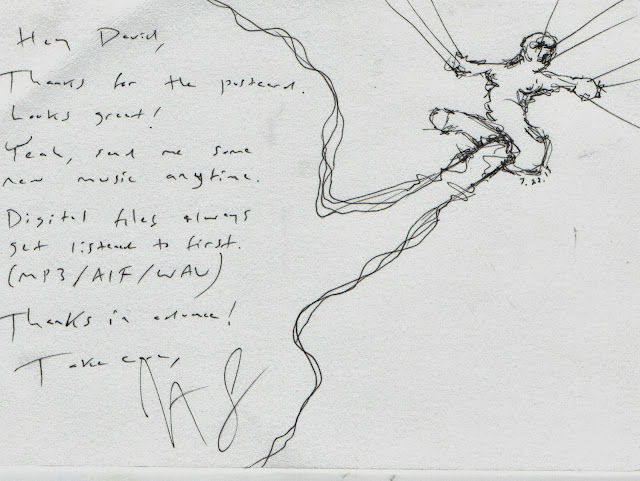 Hey David,
Thanks for the postcard.
Looks great!
Yeah, send me some
new music anytime.
Digital files always
get listened to first.
(MP3/AIF/WAV)
Thanks in advance!
Take care,